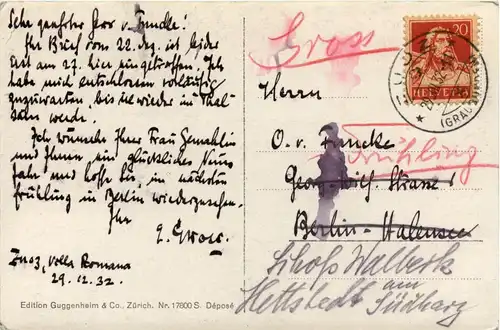 Sehr geehrter Herr v. Funcke!
Ihr Brief vom 22. dez. ist leider
erst am 27. hier eingetroffen. Ich
habe mich entschlossen vorläufig
zuzuwarten, bis Sie wieder in Thal-
sein werde.
Ich wünsche Ihrer Frau Gemahlin
und Ihnen, ein glückliches Neues
Jahr und hoffe Sie, im nächsten
Frühling in Berlin wiederzusehen.
Ihr
Zuoz, Villa Romana
29.12.32.
Edition Guggenheim & Co., Zürich. Nr. 17800 S. Déposé
20
HELVETIA
ZUOZ
(GRAUBÜNDEN)
Gross
Herrn
O. v. Funcke
Frühling
Georg-Wilh. Strasse
Berlin-Halensee
Schloß Walbeck
Hettstedt am
Südharz